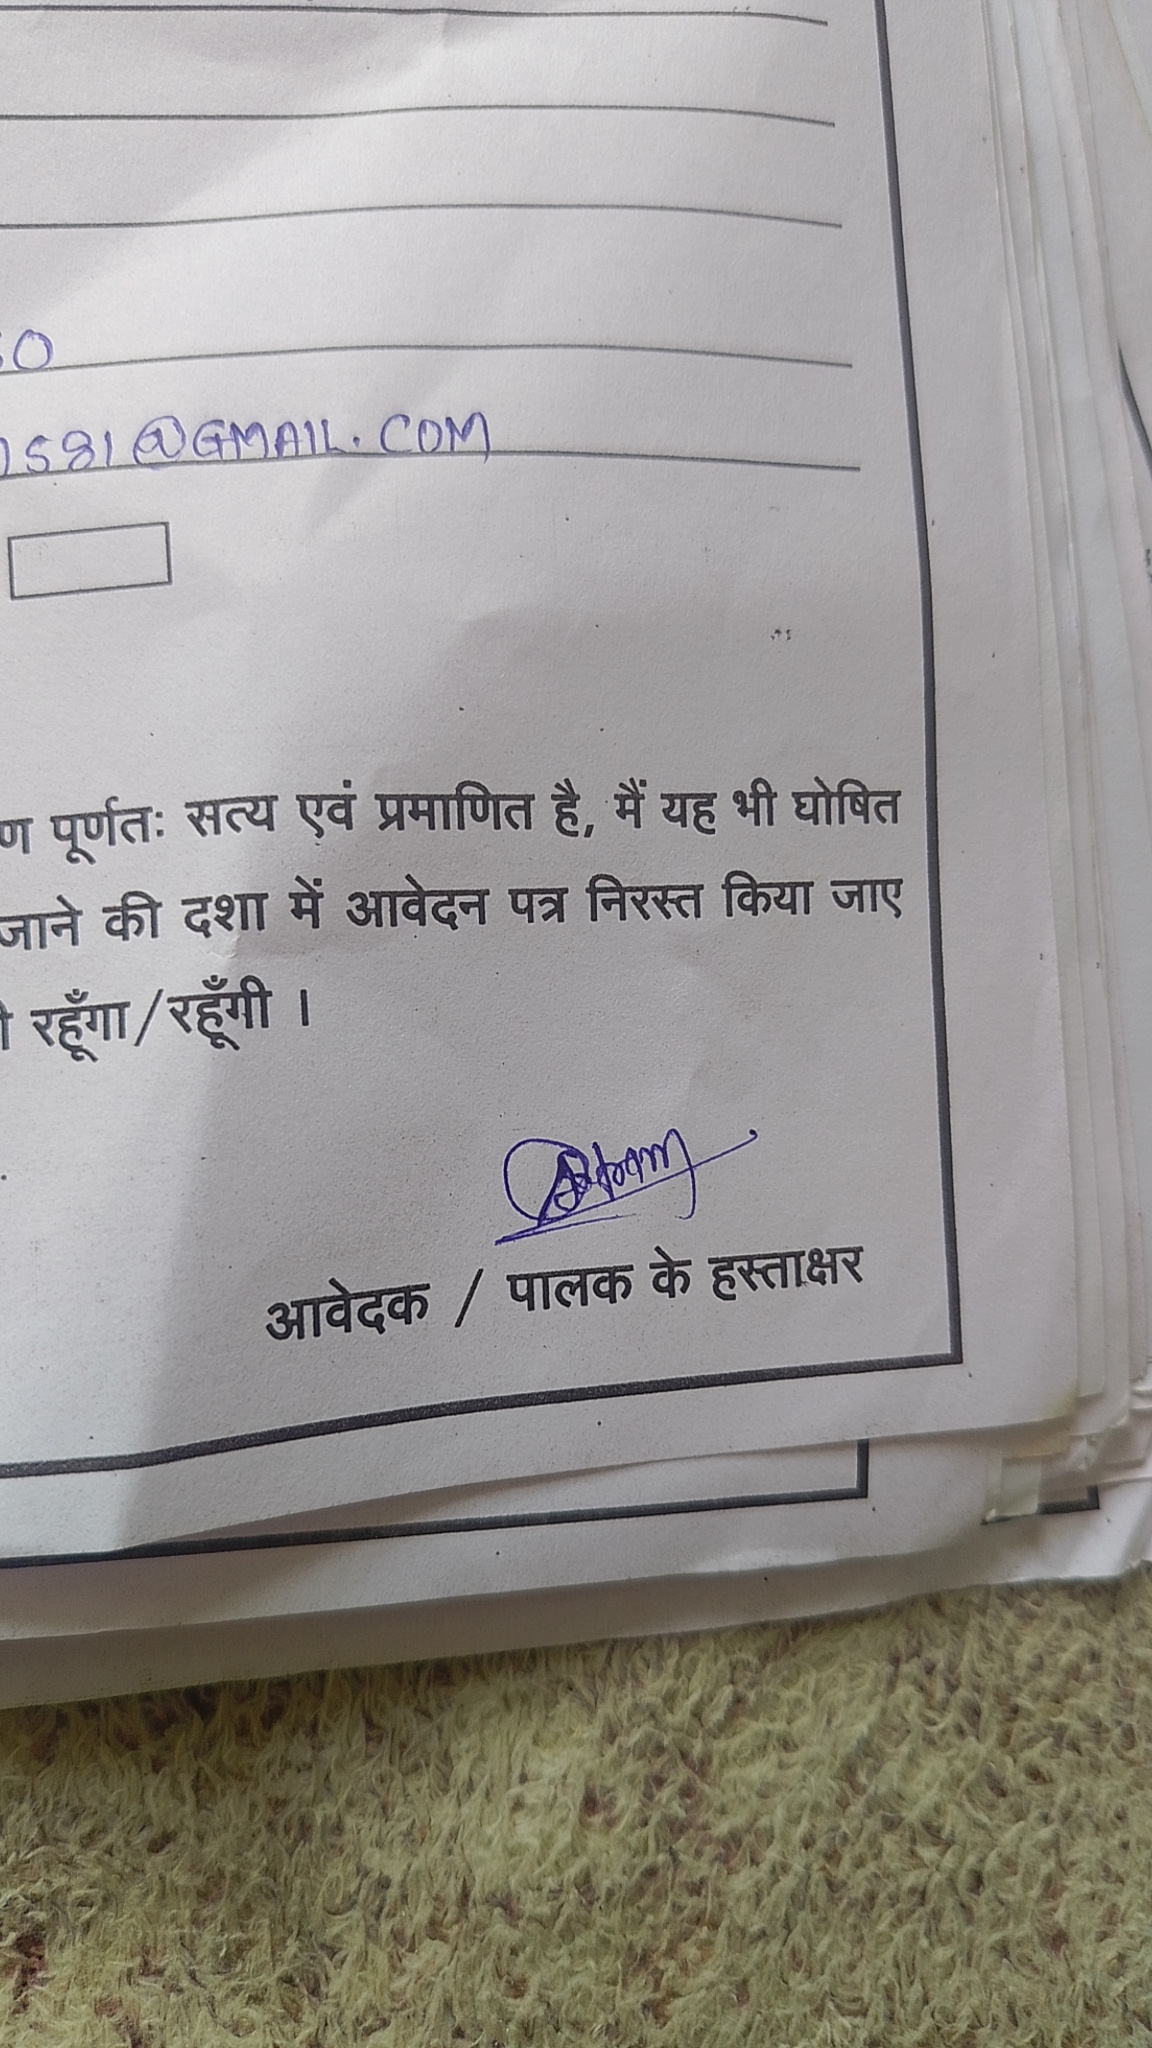 0
1581@GMAIL.COM
ण पूर्णतः सत्य एवं प्रमाणित है, मैं यह भी घोषित
जाने की दशा में आवेदन पत्र निरस्त किया जाए
रहूँगा/रहूँगी ।
आवेदक / पालक के हस्ताक्षर